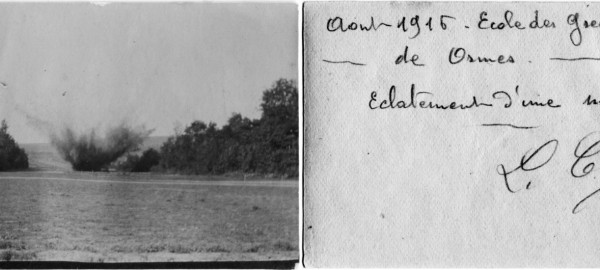 Aout 1915 - Ecole des
de Osmes.
Eclatement d'une
L.